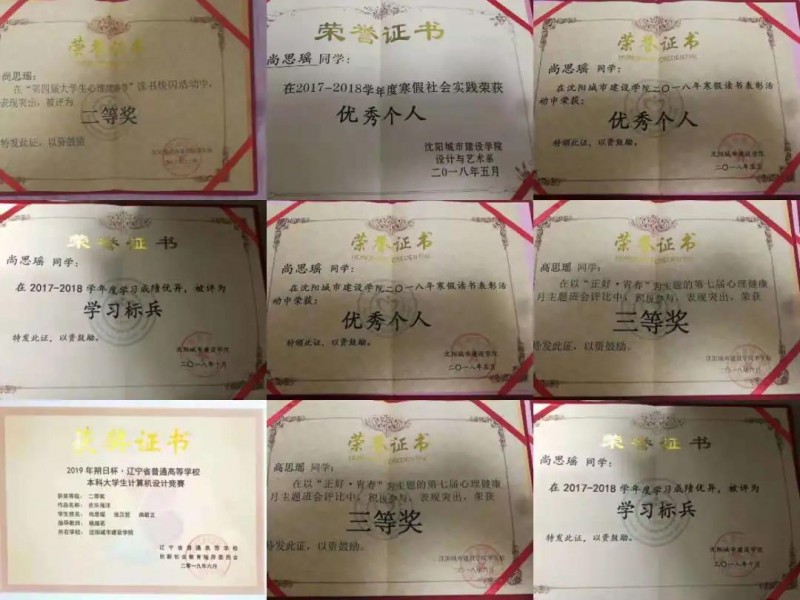 荣誉证书
尚思瑶：
在"第四届大学生心理情景剧"读书校园活动中，
表现突出，被评为
二等奖
特发此证，以资鼓励
荣誉证书
尚思瑶同学：
在2017-2018学年度寒假社会实践荣获
优秀个人
沈阳城市建设学院
设计与艺术系
二〇一八年五月
荣誉证书
尚思瑶 同学：
在沈阳城市建设学院二〇一八年寒假读书表彰活
动中荣获：
优秀个人
特颁此证，以资鼓励。
沈阳城市建设学院
二〇一八年五月
荣誉证书
尚思瑶 同学：
在 2017-2018 学年度学习成绩优异，被评为
学习标兵
特发此证，以资鼓励。
沈阳城市建设学院
二〇一八年十月
荣誉证书
尚思瑶 同学：
在沈阳城市建设学院二〇一八年寒假读书表彰活
动中荣获：
优秀个人
特颁此证，以资鼓励。
沈阳城市建设学院
二〇一八年五月
荣誉证书
高思瑶 同学：
在以"正好·青春"为主题的第七届心理健康
月主题班会评比中，积极参与，表现突出，荣获
三等奖
特发此证，以资鼓励。
荣誉证书
2019 年朔日杯·辽宁省普通高等学校
本科大学生计算机设计竞赛
获奖等级：二等奖
作品名称：欢乐海洋
所在学校：沈阳城市建设学院
辽宁省普通高等学校
创新创业教育指导委员会
二零一九年六月
荣誉证书
高思瑶 同学：
在以"正好·青春"为主题的第七届心理健康
月主题班会评比中，积极参与，表现突出，荣获
三等奖
特发此证，以资鼓励。
荣誉证书
尚思瑶 同学：
在 2017-2018 学年度学习成绩优异，被评为
学习标兵
特发此证，以资鼓励。
沈阳城市建设学院
二〇一八年十月